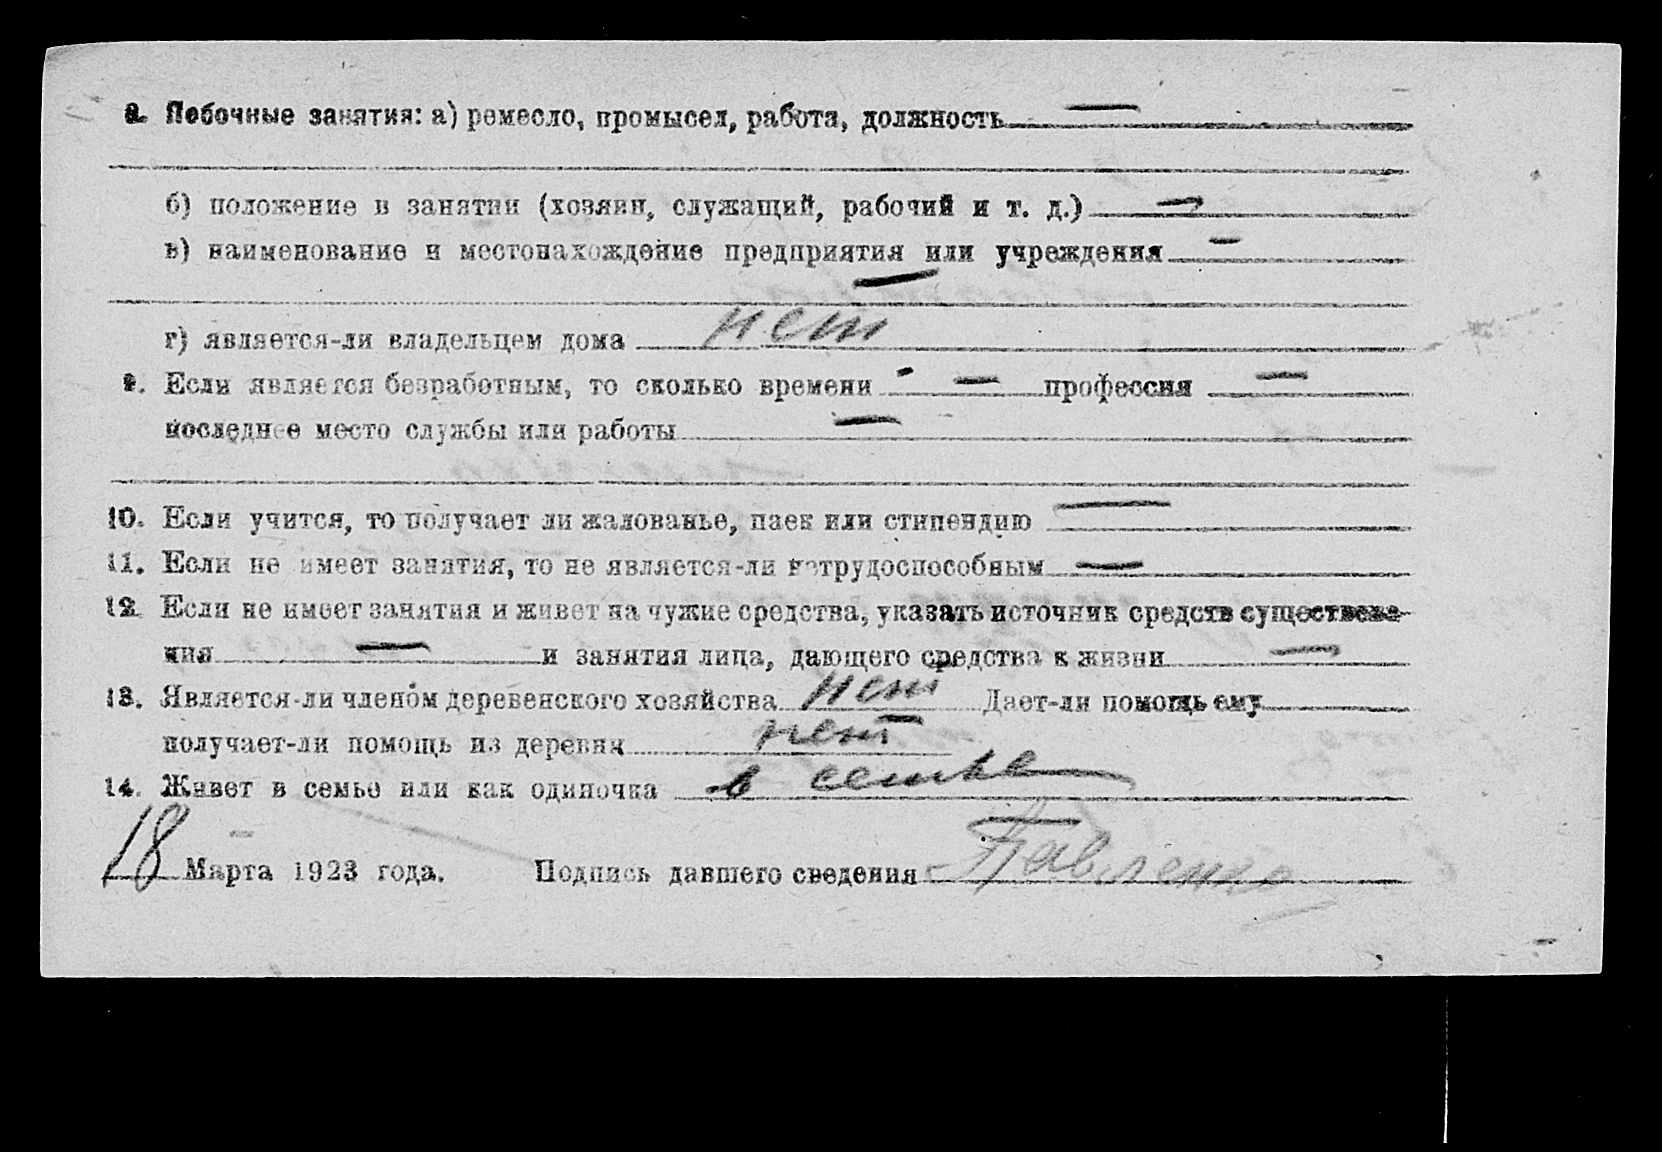 8. Побочные занятия: а) ремесло, промысел, работа, должность —
б) положение в занятии (хозяин, служащий, рабочий и т. д.) —
в) наименование и местонахождение предприятия или учреждения —
—
г) является-ли владельцем дома нет
9. Если является безработным, то сколько времени — профессия —
последнее место службы или работы —
10. Если учится, то получает ли жалованье, паек или стипендию —
11. Если не имеет занятия, то не является-ли нетрудоспособным —
12. Если не имеет занятия и живет на чужие средства, указать источник средств существова-
ния — и занятия лица, дающего средства к жизни —
13. Является-ли членом деревенского хозяйства нет Дает-ли помощь ему
получает-ли помощь из деревни нет
14. Живет в семье или как одиночка в семье
18 Марта 1923 года. Подпись давшего сведения Павленко